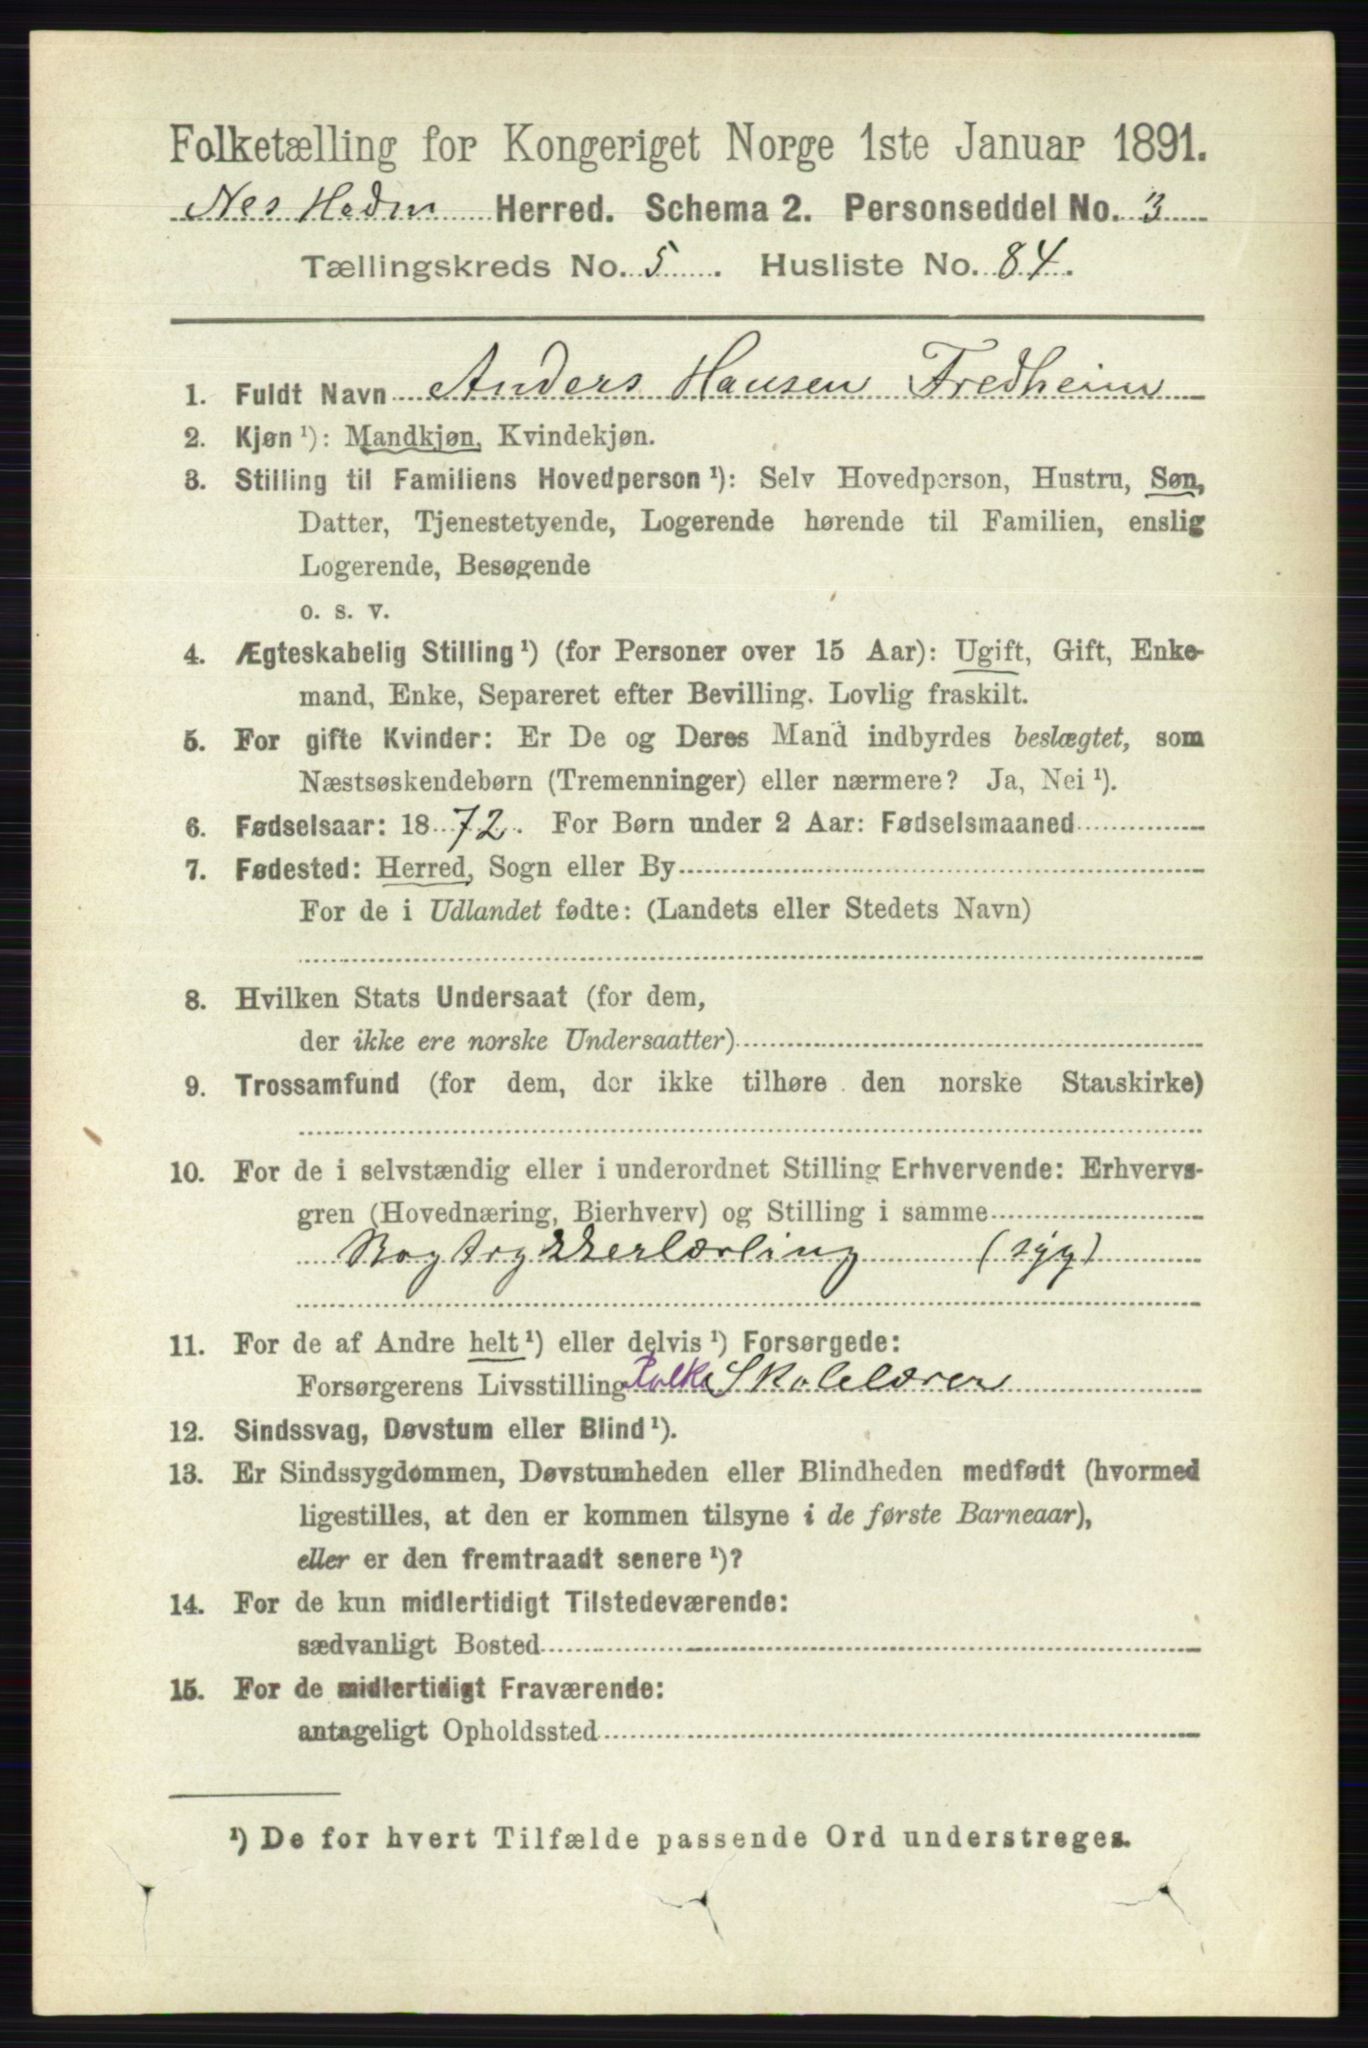 Folketælling for Kongeriget Norge 1ste Januar 1891.
Nes Hedm Herred. Schema 2. Personseddel No. 3
Tællingskreds No. 5. Husliste No. 84.
1. Fuldt Navn Anders Hansen Fredheim
2. Kjøn ¹): Mandkjøn, Kvindekjøn.
3. Stilling til Familiens Hovedperson ¹): Selv Hovedperson, Hustru, Søn,
Datter, Tjenestetyende, Logerende hørende til Familien, enslig
Logerende, Besøgende
o. s. v.
4. Ægteskabelig Stilling ¹) (for Personer over 15 Aar): Ugift, Gift, Enke-
mand, Enke, Separeret efter Bevilling. Lovlig fraskilt.
5. For gifte Kvinder: Er De og Deres Mand indbyrdes beslægtet, som
Næstsøskendebørn (Tremenninger) eller nærmere? Ja, Nei ¹).
6. Fødselsaar: 1872. For Børn under 2 Aar: Fødselsmaaned
7. Fødested: Herred, Sogn eller By
For de i Udlandet fødte: (Landets eller Stedets Navn)
8. Hvilken Stats Undersaat (for dem,
der ikke ere norske Undersaatter)
9. Trossamfund (for dem, der ikke tilhøre den norske Statskirke)
10. For de i selvstændig eller i underordnet Stilling Erhvervende: Erhvervs-
gren (Hovednæring, Bierhverv) og Stilling i samme
Bogtrykkerlærling (syg)
11. For de af Andre helt ¹) eller delvis ¹) Forsørgede:
Forsørgerens Livsstilling Folke Skolelærer
12. Sindssvag, Døvstum eller Blind ¹).
13. Er Sindssygdommen, Døvstumheden eller Blindheden medfødt (hvormed
ligestilles, at den er kommen tilsyne i de første Barneaar),
eller er den fremtraadt senere ¹)?
14. For de kun midlertidigt Tilstedeværende:
sædvanligt Bosted
15. For de midlertidigt Fraværende:
antageligt Opholdssted
¹) De for hvert Tilfælde passende Ord understreges.